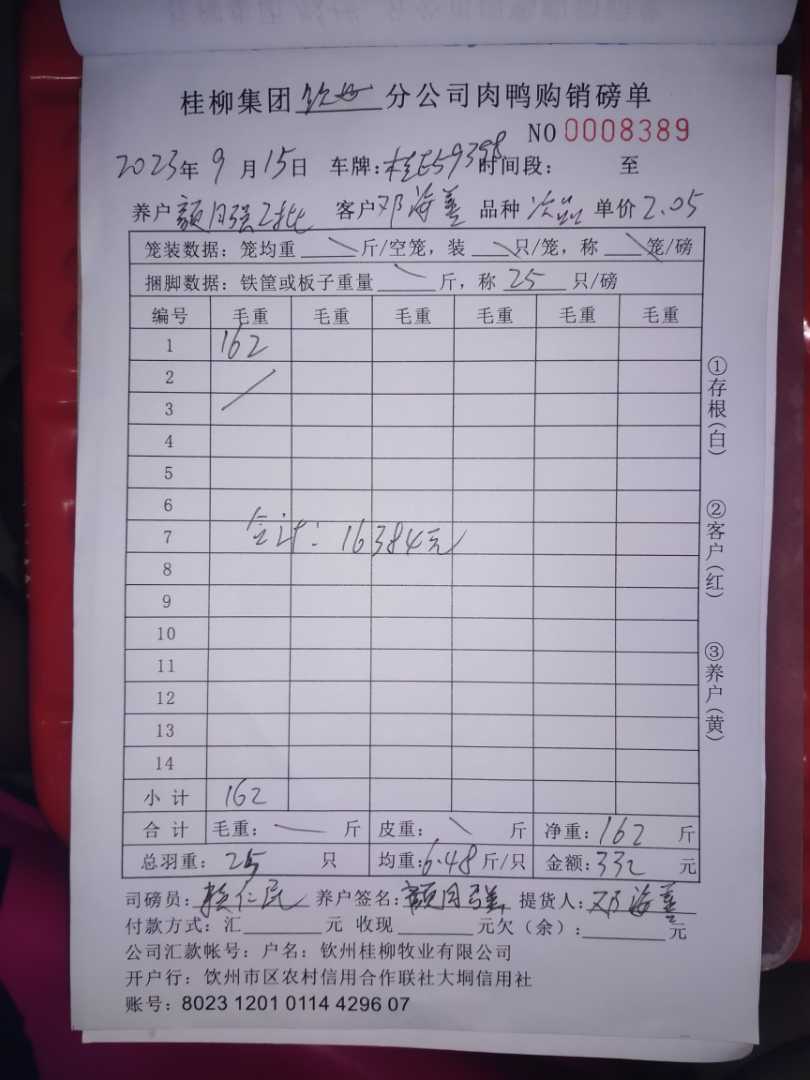 桂柳集团钦州分公司肉鸭购销磅单
NO 0008389
2023年9月15日 车牌:桂E59398 时间段: 至
养户 颜月强2批 客户 邓海善 品种 次品 单价 2.05
笼装数据:笼均重 斤/空笼,装 只/笼,称 笼/磅
捆脚数据:铁筐或板子重量 斤,称 25 只/磅
编号 毛重 毛重 毛重 毛重 毛重 毛重
1 162
2
3
4
5
6
7 合计:16384元
8
9
10
11
12
13
14
小计 162
合计 毛重: 斤 皮重: 斤 净重:162 斤
总羽重:25 只 均重:6.48斤/只 金额:332 元
司磅员: 仁民 养户签名:颜月强 提货人:邓海善
付款方式:汇 元 收现 元欠(余): 元
公司汇款帐号:户名:钦州桂柳牧业有限公司
开户行:钦州市区农村信用合作联社大垌信用社
账号:8023 1201 0114 4296 07
①存根(白)
②客户(红)
③养户(黄)